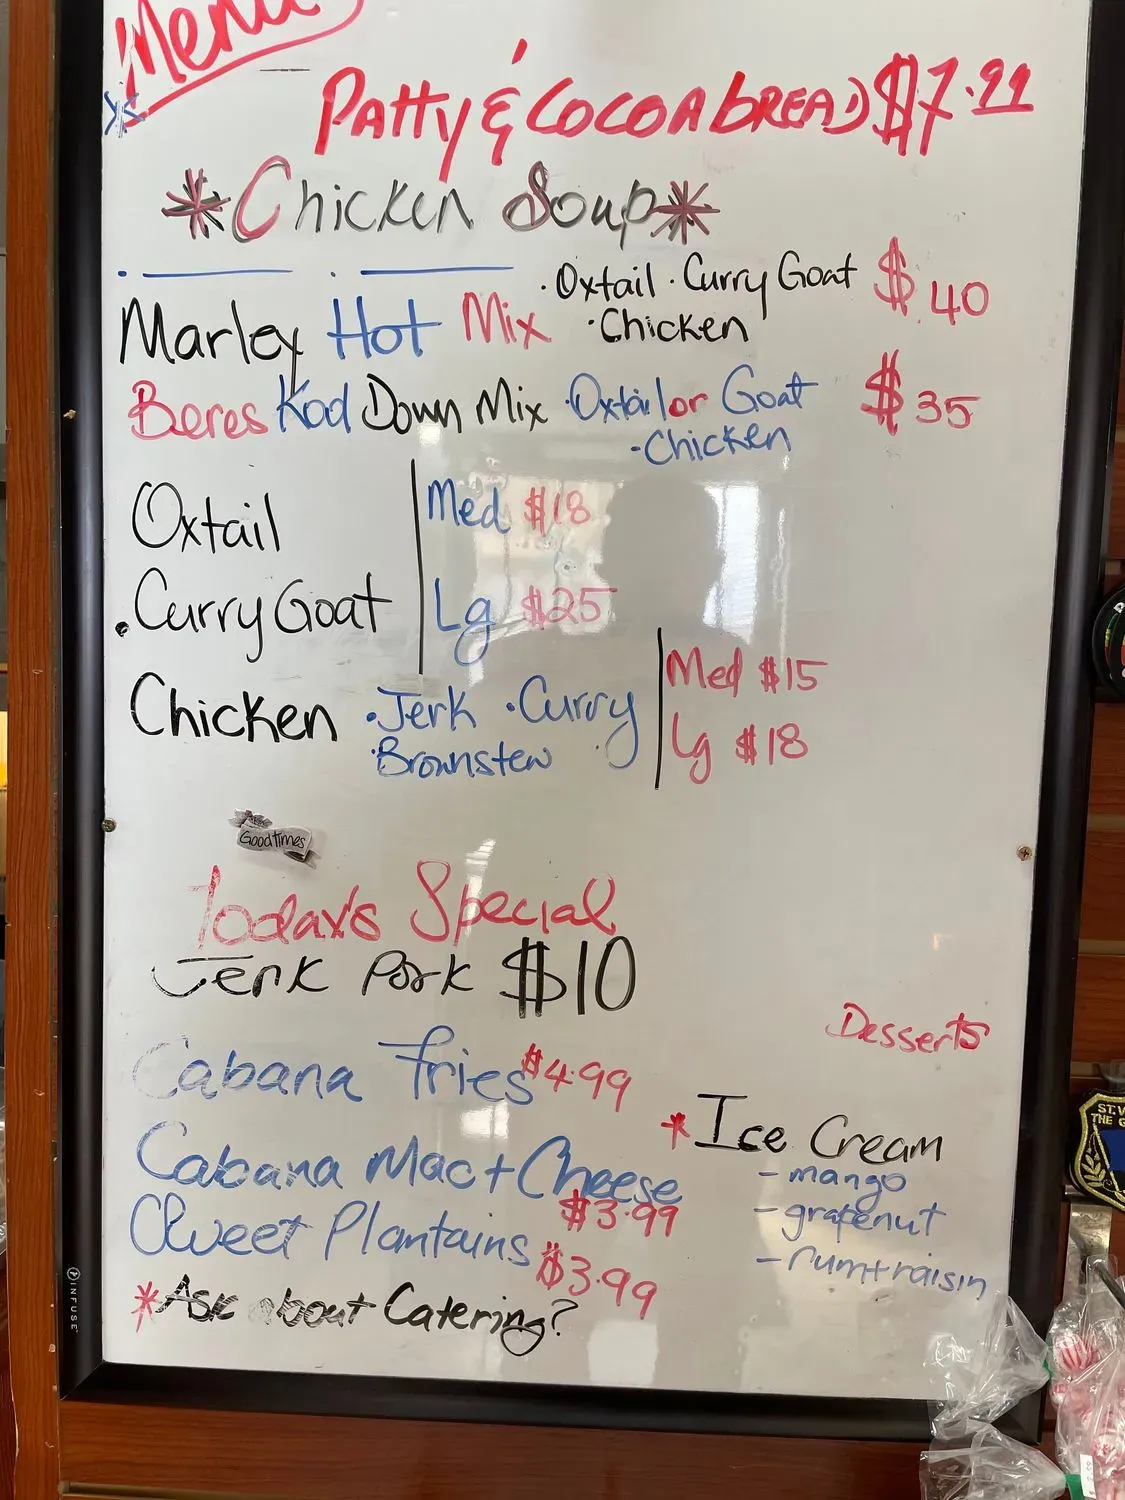 Menu
Patty & Cocoabread $7.99
*Chicken Soup*
Marley Hot Mix · Oxtail · Curry Goat $40
· Chicken
Beres Kod Down Mix · Oxtail or Goat $35
- Chicken
Oxtail Med $18
. Curry Goat Lg $25
Chicken · Jerk · Curry Med $15
· Brownstew Lg $18
Good times
Today's Special
Jerk Pork $10
Desserts
Cabana Fries $4.99
* Ice Cream
- mango
- grapenut
- rum+raisin
Cabana Mac + Cheese
$3.99
Sweet Plantains
$3.99
*Ask about Catering?
INFUSE
ST.V
THE G